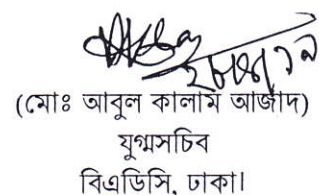 (মোঃ আবুল কালাম আজাদ)
যুগ্মসচিব
বিএডিসি, ঢাকা।